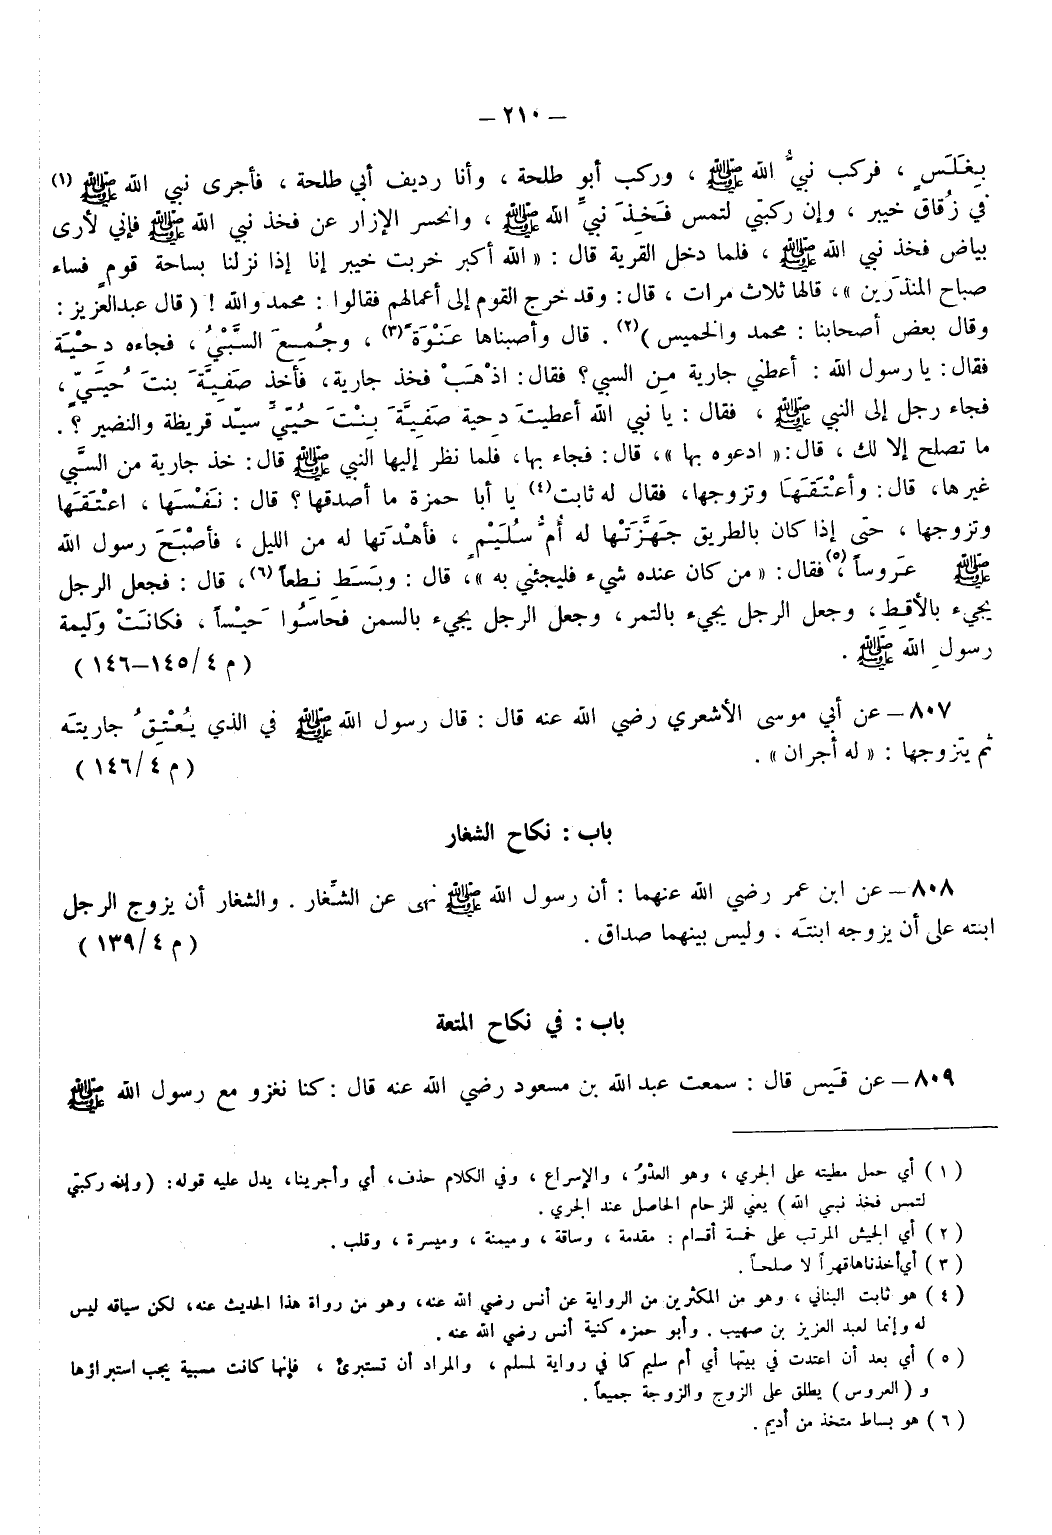 — ٢١٠ —
بِغَلَسٍ ، فركب نبيُّ الله ﷺ ، وركب أبو طلحة ، وأنا رديف أبي طلحة ، فأجرى نبي الله ﷺ (١)
في زُقاق خيبر ، وإن ركبتي لتمس فَخِذَ نبيِّ الله ﷺ ، وانحسر الإزار عن فخذ نبي الله ﷺ فإني لأرى
بياض فخذ نبي الله ﷺ ، فلما دخل القرية قال : « الله أكبر خربت خيبر إنا إذا نزلنا بساحة قومٍ فساء
صباح المنذَرين » ، قالها ثلاث مرات ، قال : وقد خرج القوم إلى أعمالهم فقالوا : محمد والله ! ( قال عبدالعزيز :
وقال بعض أصحابنا : محمد والخميس )(٢) . قال وأصبناها عَنْوَةً(٣) ، وجُمِعَ السَّبْيُ ، فجاءه دِحْيَة
فقال : يا رسول الله : أعطني جارية مِن السبي ؟ فقال : اذْهَبْ فخذ جارية ، فأخذ صَفِيَّةَ بنتَ حُيَيٍّ ،
فجاء رجل إلى النبي ﷺ ، فقال : يا نبي الله أعطيتَ دِحية صَفِيَّةَ بِنْتَ حُيَيٍّ سيّد قريظة والنضير ؟ .
ما تصلح إلا لك ، قال : « ادعوه بها » ، قال : فجاء بها ، فلما نظر إليها النبي ﷺ قال : خذ جارية من السَّبي
غيرها ، قال : وأعْتَقَهَا وتزوجها ، فقال له ثابت(٤) يا أبا حمزة ما أصدقها ؟ قال : نَفْسَها ، اعْتَقَها
وتزوجها ، حتى إذا كان بالطريق جَهَّزَتْها له أُمُّ سُلَيْمٍ ، فأهْدَتها له من الليل ، فأصْبَحَ رسول الله
ﷺ عَروساً(٥) ، فقال : « من كان عنده شيء فليجئني به » ، قال : وبَسَطَ نِطعاً(٦) ، قال : فجعل الرجل
يجيء بالأقِطِ ، وجعل الرجل يجيء بالتمر ، وجعل الرجل يجيء بالسمن فحاسُوا حَيْساً ، فكانَتْ وليمة
رسولِ الله ﷺ . ( م ٤/ ١٤٥–١٤٦ )
٨٠٧ – عن أبي موسى الأشعري رضي الله عنه قال : قال رسول الله ﷺ في الذي يُعْتِقُ جاريتَه
ثم يتزوجها : « له أجران » . ( م ٤/ ١٤٦ )
باب : نكاح الشغار
٨٠٨ – عن ابن عمر رضي الله عنهما : أن رسول الله ﷺ نهى عن الشِّغار . والشغار أن يزوج الرجل
ابنته على أن يزوجه ابنتَه ، وليس بينهما صداق . ( م ٤/ ١٣٩ )
باب : في نكاح المتعة
٨٠٩ – عن قَيس قال : سمعت عبد الله بن مسعود رضي الله عنه قال : كنا نغزو مع رسول الله ﷺ
( ١ ) أي حمل مطيته على الجري ، وهو العدْوُ ، والإسراع ، وفي الكلام حذف ، أي وأجرينا ، يدل عليه قوله : ( وإن ركبتي
لتمس فخذ نبي الله ) يعني للزحام الحاصل عند الجري .
( ٢ ) أي الجيش المرتب على خمسة أقسام : مقدمة ، وساقة ، وميمنة ، وميسرة ، وقلب .
( ٣ ) أي أخذناها قهراً لا صلحاً .
( ٤ ) هو ثابت البناني ، وهو من المكثرين من الرواية عن أنس رضي الله عنه ، وهو من رواة هذا الحديث عنه ، لكن سياقه ليس
له وإنما لعبد العزيز بن صهيب . وأبو حمزه كنية أنس رضي الله عنه .
( ٥ ) أي بعد أن اعتدت في بيتها أي أم سليم كما في رواية لمسلم ، والمراد أن تستبرئ ، فإنها كانت مسبية يجب استبراؤها
و ( العروس ) يطلق على الزوج والزوجة جميعاً .
( ٦ ) هو بساط متخذ من أديم .